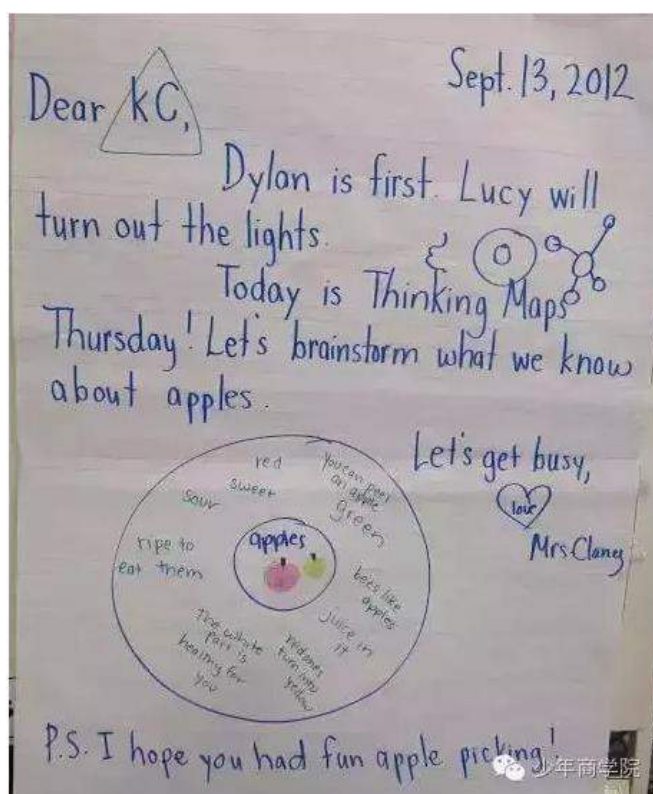 Sept. 13, 2012
Dear KC,
Dylan is first. Lucy will
turn out the lights.
Today is Thinking Maps
Thursday! Let's brainstorm what we know
about apples.
Let's get busy,
love
Mrs. Clancy
red
sweet
sour
you can peel
an apple
green
apples
ripe to
eat them
bees like
apples
juice in
it
The white
part is
healthy for
you
red ones
turn into
yellow
P.S. I hope you had fun apple picking!
少年商学院